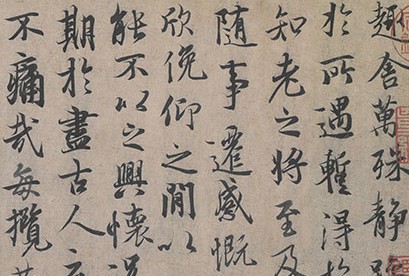 趣舍萬殊靜
於所遇蹔得於
知老之將至及
隨事遷感慨
欣俛仰之閒以
能不以之興懷況
期於盡古人云
不痛哉每攬昔